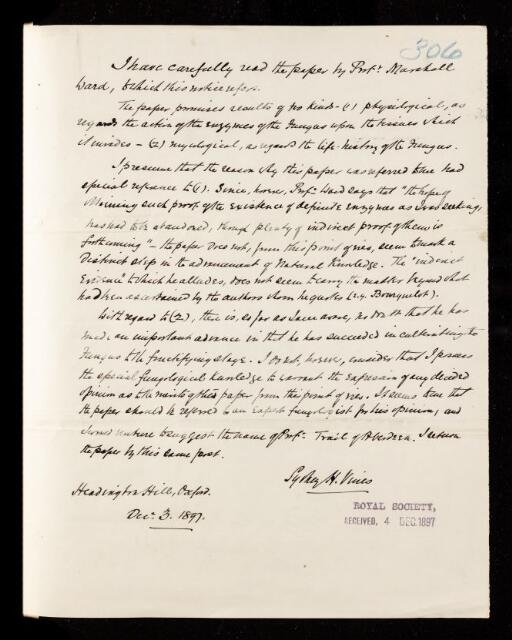 306
I have carefully read the paper by Prof. Marshall
Ward, to which this notice refers.
The paper promises results of two kinds – (1) physiological, as
regards the action of the enzymes of the Fungus upon the tissues which
it invades – (2) mycological, as regards the life-history of the Fungus.
I presume that the reason why this paper was referred to me had
special reference to (1). Since, however, Prof. Ward says that "the hope of
obtaining such proof of the existence of definite enzymes as I was seeking,
has had to be abandoned, though plenty of indirect proof of them is
forthcoming" – the paper does not, from this point of view, seem to mark a
distinct step in the advancement of Natural Knowledge. The "indirect
Evidence" to which he alludes, does not seem to carry the matter beyond what
had been ascertained by the authors whom he quotes (e.g. Bourquelot).
With regard to (2), there is, so far as I am aware, no doubt that he has
made an important advance in that he has succeeded in cultivating the
Fungus to the fructifying stage. I do not, however, consider that I possess
the special fungological knowledge to warrant the expression of any decided
opinion as to the merits of this paper from this point of view. It seems to me that
the paper should be referred to an expert fungologist for his opinion; and
I would venture to suggest the name of Prof. Trail of Aberdeen. I return
the paper by this same post.
Sydney H. Vines
Headington Hill, Oxford.
Dec. 3. 1897.
ROYAL SOCIETY,
RECEIVED, 4 DEC. 1897